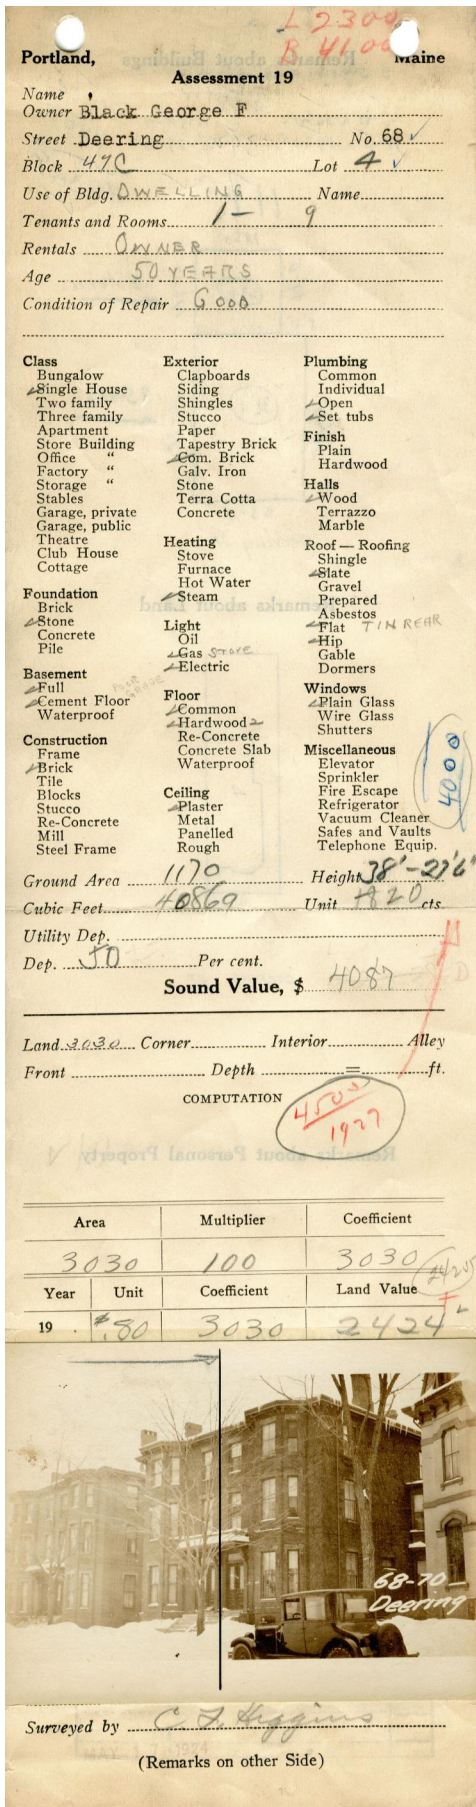 L 2300
B 4100
Portland, Maine
Assessment 19
Name
Owner Black George F
Street Deering No. 68 ✓
Block 47C Lot 4 ✓
Use of Bldg. DWELLING Name
Tenants and Rooms 1 - 9
Rentals OWNER
Age 50 YEARS
Condition of Repair GOOD
Class
Bungalow
Single House
Two family
Three family
Apartment
Store Building
Office "
Factory "
Storage "
Stables
Garage, private
Garage, public
Theatre
Club House
Cottage
Foundation
Brick
Stone
Concrete
Pile
Basement
Full
Cement Floor
Waterproof
Construction
Frame
Brick
Tile
Blocks
Stucco
Re-Concrete
Mill
Steel Frame
Exterior
Clapboards
Siding
Shingles
Stucco
Paper
Tapestry Brick
Com. Brick
Galv. Iron
Stone
Terra Cotta
Concrete
Heating
Stove
Furnace
Hot Water
Steam
Light
Oil
Gas STOVE
Electric
Floor
Common
Hardwood 2
Re-Concrete
Concrete Slab
Waterproof
Ceiling
Plaster
Metal
Panelled
Rough
Plumbing
Common
Individual
Open
Set tubs
Finish
Plain
Hardwood
Halls
Wood
Terrazzo
Marble
Roof — Roofing
Shingle
Slate
Gravel
Prepared
Asbestos
Flat TIN REAR
Hip
Gable
Dormers
Windows
Plain Glass
Wire Glass
Shutters
Miscellaneous
Elevator
Sprinkler
Fire Escape
Refrigerator
Vacuum Cleaner
Safes and Vaults
Telephone Equip.
4000
Ground Area 1170 Height 38'-27'6"
Cubic Feet 40869 Unit 20 cts.
Utility Dep.
Dep. 50 Per cent.
Sound Value, $ 4087
Land 3030 Corner Interior Alley
Front Depth = ft.
COMPUTATION
4500
1927
Area Multiplier Coefficient
3030 100 3030
2425
Year Unit Coefficient Land Value
19 $.80 3030 2424
68-70
Deering
Surveyed by C F Higgins
(Remarks on other Side)